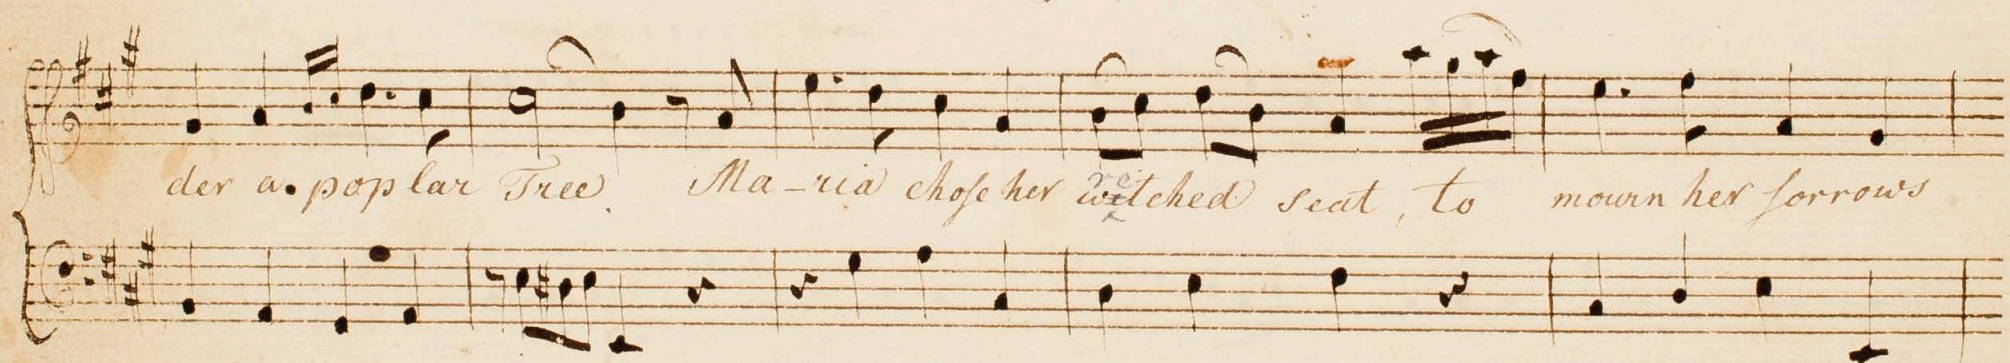 der a. poplar Tree. Ma-ria choſe her wretched seat, to mourn her ſorrows